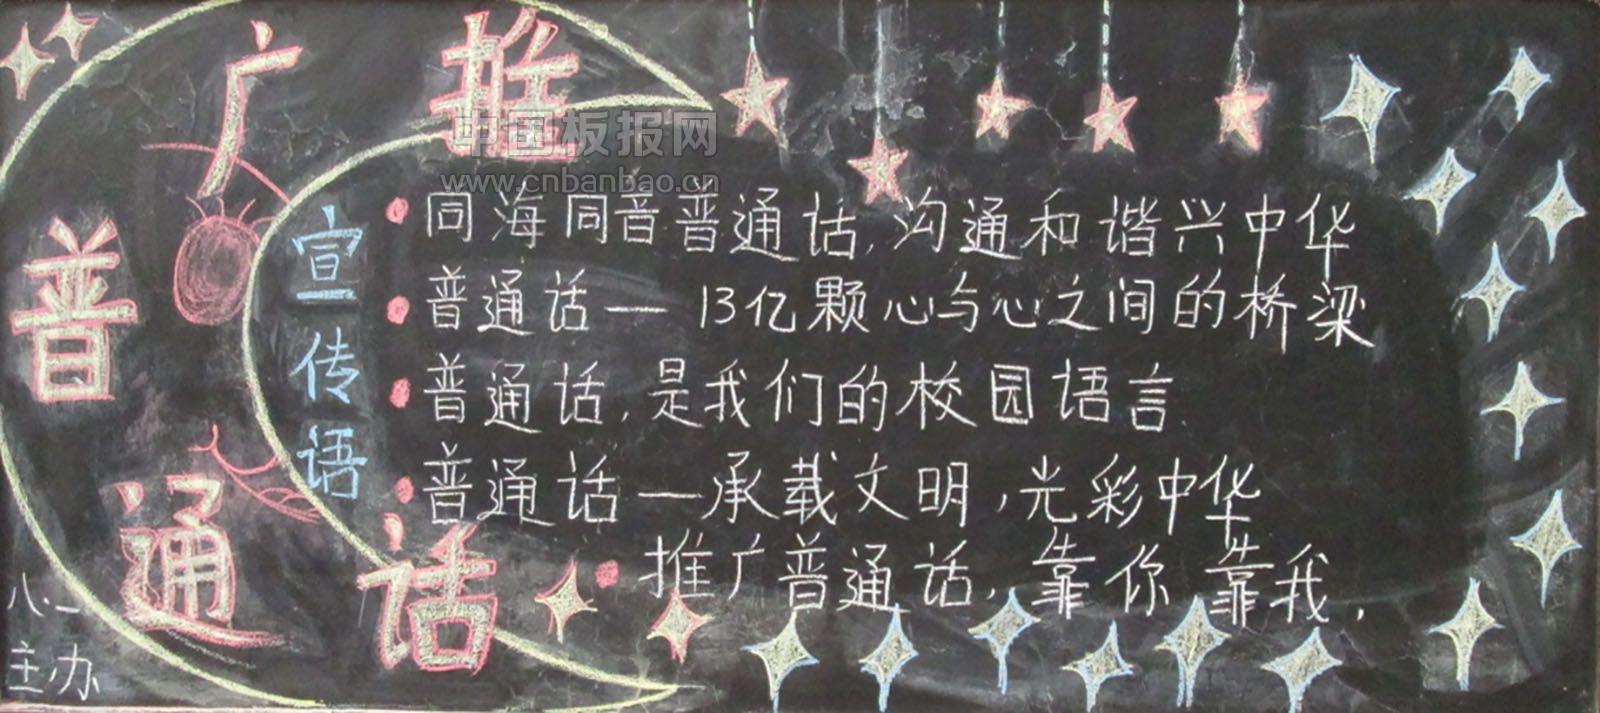 推广普通话
中国板报网
www.cnbanbao.cn
宣传语
同海同音普通话,沟通和谐兴中华
普通话—13亿颗心与心之间的桥梁
普通话,是我们的校园语言
普通话—承载文明,光彩中华
推广普通话,靠你靠我.
八一
主办